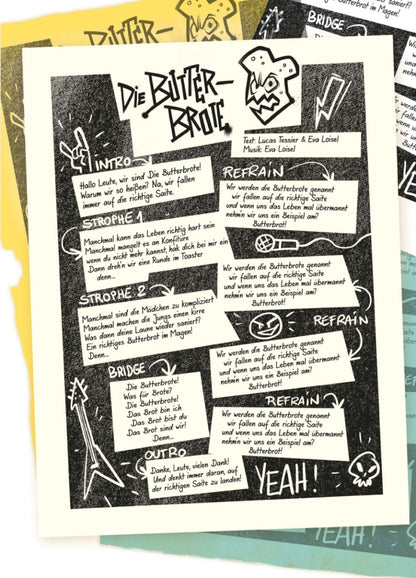 DIE BUTTER-
BROTE
Text: Lucas Tessier & Eva Loisel
Musik: Eva Loisel
INTRO
Hallo Leute, wir sind Die Butterbrote!
Warum wir so heißen? Na, wir fallen
immer auf die richtige Saite.
STROPHE 1
Manchmal kann das Leben richtig hart sein
Manchmal mangelt es an Konfitüre
wenn du nicht mehr kannst, hak dich bei mir ein
Dann dreh'n wir eine Runde im Toaster
denn...
STROPHE 2
Manchmal sind die Mädchen zu kompliziert
Manchmal machen die Jungs einen kirre
Was dann deine Laune wieder saniert?
Ein richtiges Butterbrot im Magen!
Denn...
BRIDGE
Die Butterbrote!
Was für Brote?
Die Butterbrote!
Das Brot bin ich
Das Brot bist du
Das Brot sind wir!
Denn...
OUTRO
Danke, Leute, vielen Dank!
Und denkt immer daran, auf
der richtigen Saite zu landen!
REFRAIN
Wir werden die Butterbrote genannt
wir fallen auf die richtige Saite
und wenn uns das Leben mal übermannt
nehm'n wir uns ein Beispiel am?
Butterbrot!
Wir werden die Butterbrote genannt
wir fallen auf die richtige Saite
und wenn uns das Leben mal übermannt
nehm'n wir uns ein Beispiel am?
Butterbrot!
REFRAIN
Wir werden die Butterbrote genannt
wir fallen auf die richtige Saite
und wenn uns das Leben mal übermannt
nehm'n wir uns ein Beispiel am?
Butterbrot!
REFRAIN
Wir werden die Butterbrote genannt
wir fallen auf die richtige Saite
und wenn uns das Leben mal übermannt
nehm'n wir uns ein Beispiel am?
Butterbrot!
YEAH!
DIE BUTTER-
BRIDGE
Butterbrot im Magen!
YEAH!